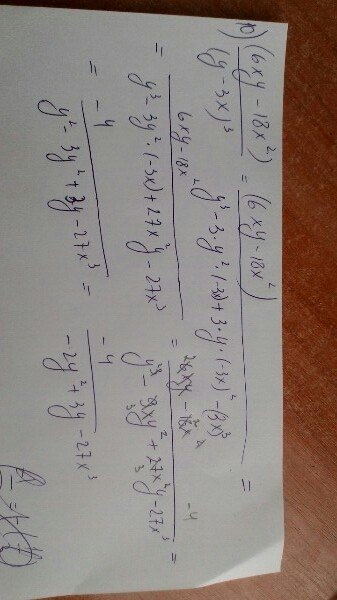 10) (6xy - 18x²) / (y - 3x)³ = (6xy - 18x²) / y³ - 3·y²·(-3x) + 3·y·(-3x)² - (3x)³ =
= 6xy - 18x² / y³ - 3y²·(-3x) + 27x²y - 27x³ = - 4 / + 27x²y - 27x³ =
= -4 / y² - 3y² + 3y - 27x³ = -4 / -2y² + 3y - 27x³